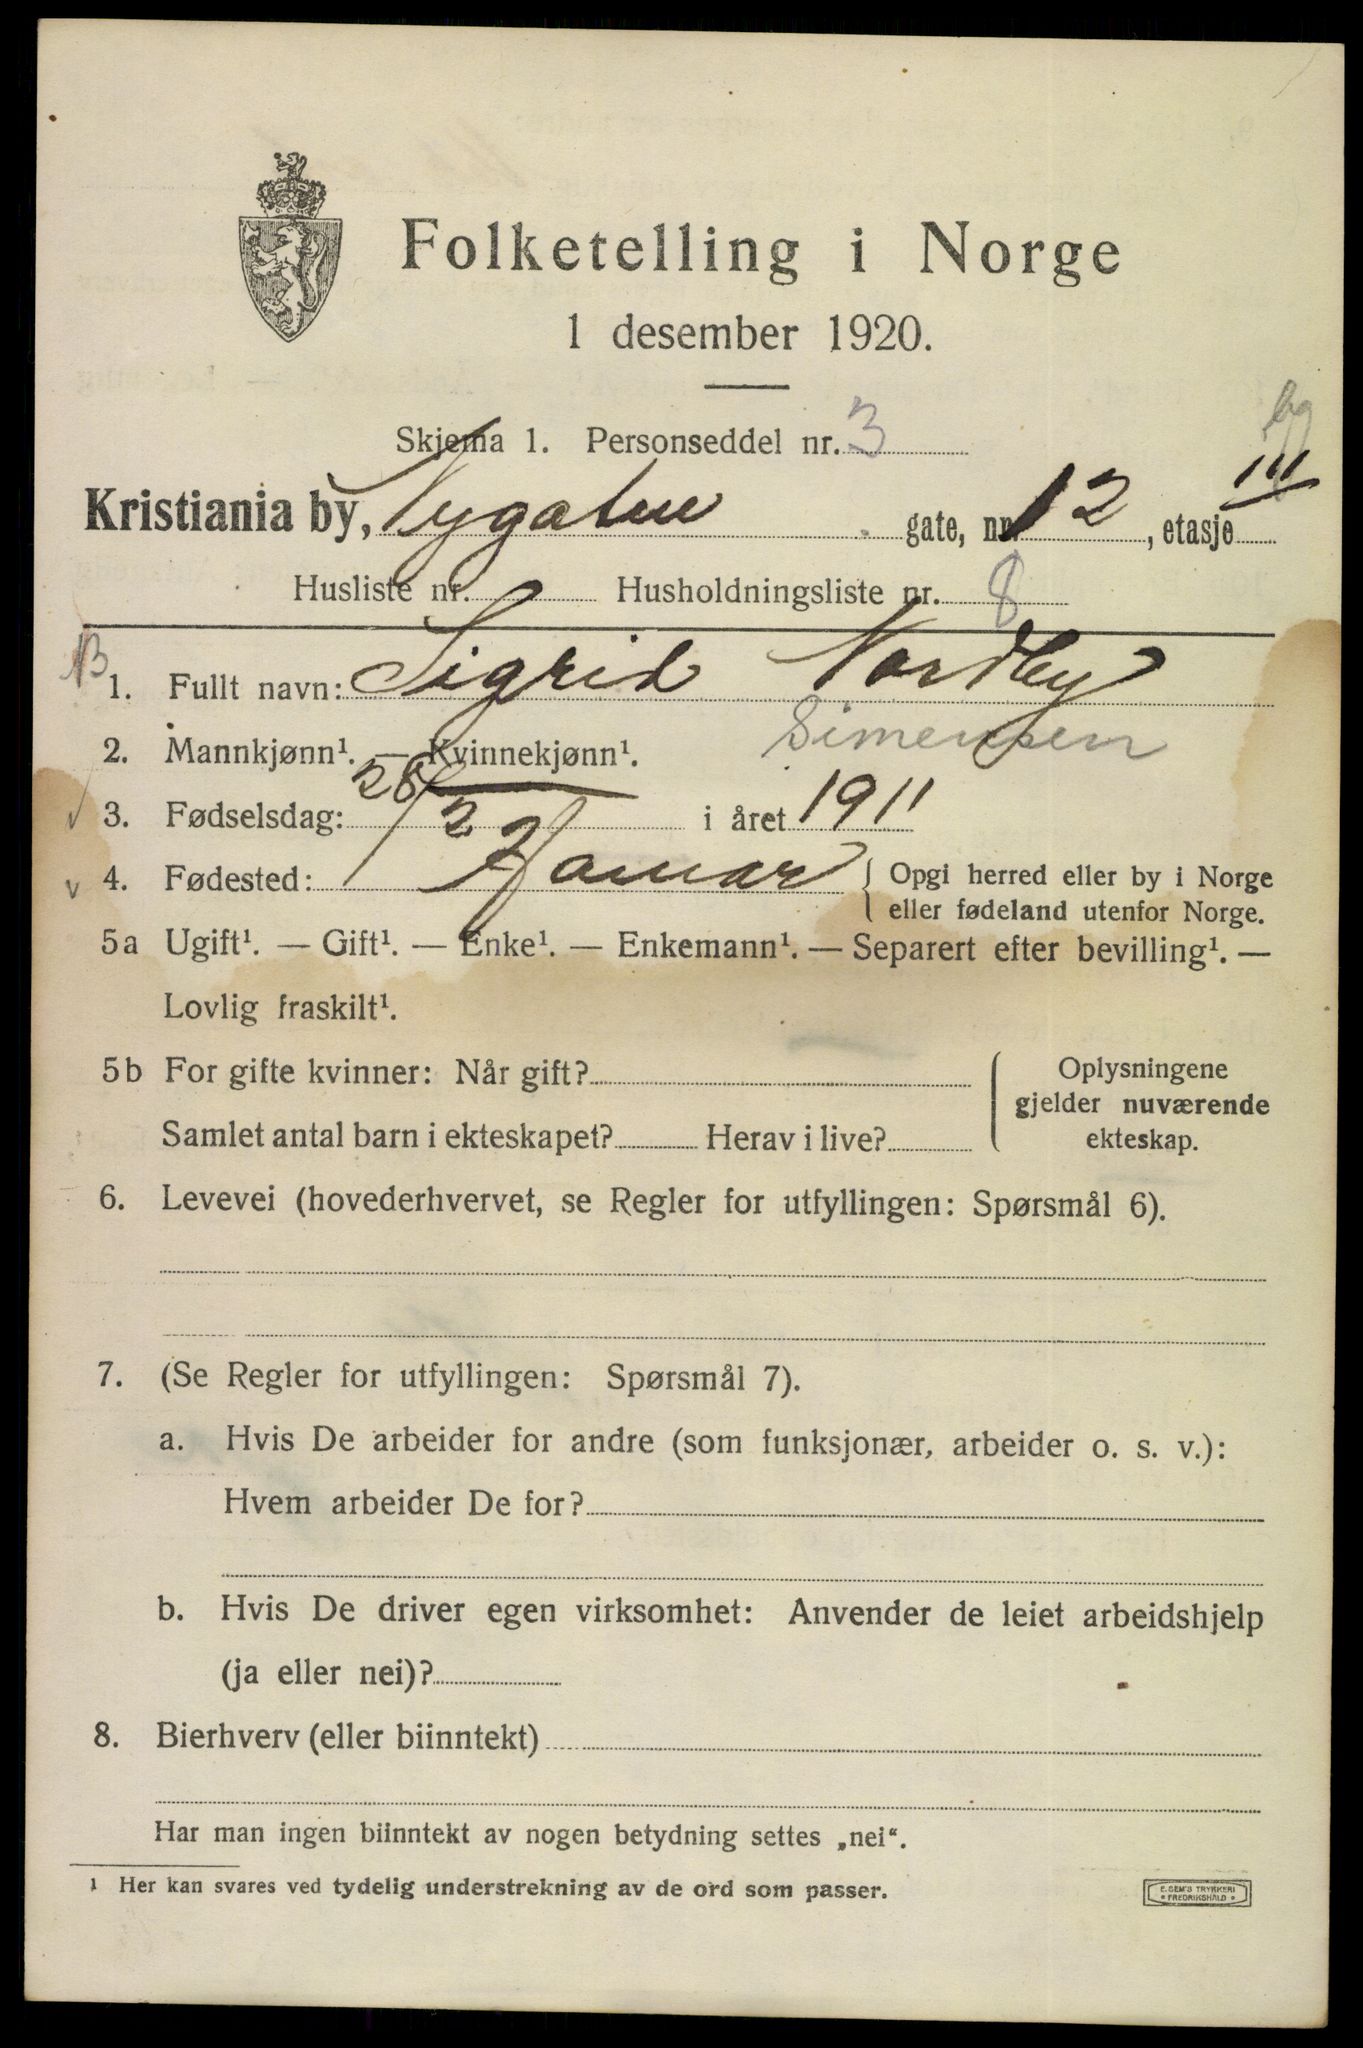 Folketelling i Norge
1 desember 1920.
Skjema 1. Personseddel nr. 3
Kristiania by, Nygaten gate, nr. 12, etasje III
Husliste nr. Husholdningsliste nr. 8
1. Fullt navn: Sigrid Nordby
Simensen
2. Mannkjønn¹. — Kvinnekjønn¹.
3. Fødselsdag: 28/2 i året 1911
4. Fødested: Hamar { Opgi herred eller by i Norge
eller fødeland utenfor Norge.
5a Ugift¹. — Gift¹. — Enke¹. — Enkemann¹. — Separert efter bevilling¹. —
Lovlig fraskilt¹.
5b For gifte kvinner: Når gift? { Oplysningene
gjelder nuværende
Samlet antal barn i ekteskapet? Herav i live? ekteskap.
6. Levevei (hovederhvervet, se Regler for utfyllingen: Spørsmål 6).
7. (Se Regler for utfyllingen: Spørsmål 7).
a. Hvis De arbeider for andre (som funksjonær, arbeider o. s. v.):
Hvem arbeider De for?
b. Hvis De driver egen virksomhet: Anvender de leiet arbeidshjelp
(ja eller nei)?
8. Bierhverv (eller biinntekt)
Har man ingen biinntekt av nogen betydning settes „nei“.
¹ Her kan svares ved tydelig understrekning av de ord som passer.
E. SEM'S TRYKKERI
• FREDRIKSHALD •